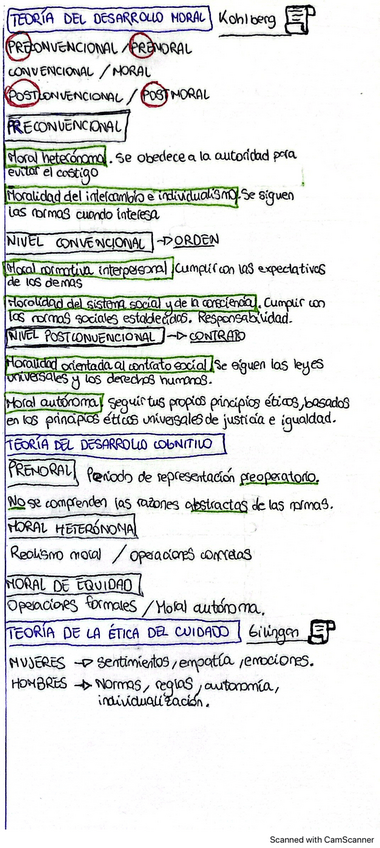 TEORÍA DEL DESARROLLO MORAL Kohlberg
PRECONVENCIONAL / PREMORAL
CONVENCIONAL / MORAL
POSTCONVENCIONAL / POSTMORAL
PRECONVENCIONAL
Moral heterónoma. Se obedece a la autoridad para
evitar el castigo
Moralidad del intercambio e individualismo. Se siguen
las normas cuando interesa
NIVEL CONVENCIONAL → ORDEN
Moral normativa interpersonal. Cumplir con las expectativas
de los demás
Moralidad del sistema social y de la consciencia. Cumplir con
las normas sociales establecidas. Responsabilidad.
NIVEL POSTCONVENCIONAL → CONTRATO
Moralidad orientada al contrato social. Se siguen las leyes
universales y los derechos humanos.
Moral autónoma. Seguir tus propios principios éticos, basados
en los principios éticos universales de justicia e igualdad.
TEORÍA DEL DESARROLLO COGNITIVO
PREMORAL Período de representación preoperatorio.
No se comprenden las razones abstractas de las normas.
MORAL HETERÓNOMA
Realismo moral / Operaciones concretas
MORAL DE EQUIDAD
Operaciones formales / Moral autónoma.
TEORÍA DE LA ÉTICA DEL CUIDADO Gilingan
MUJERES → Sentimientos, empatía, emociones.
HOMBRES → Normas, reglas, autonomía,
individualización.
Scanned with CamScanner